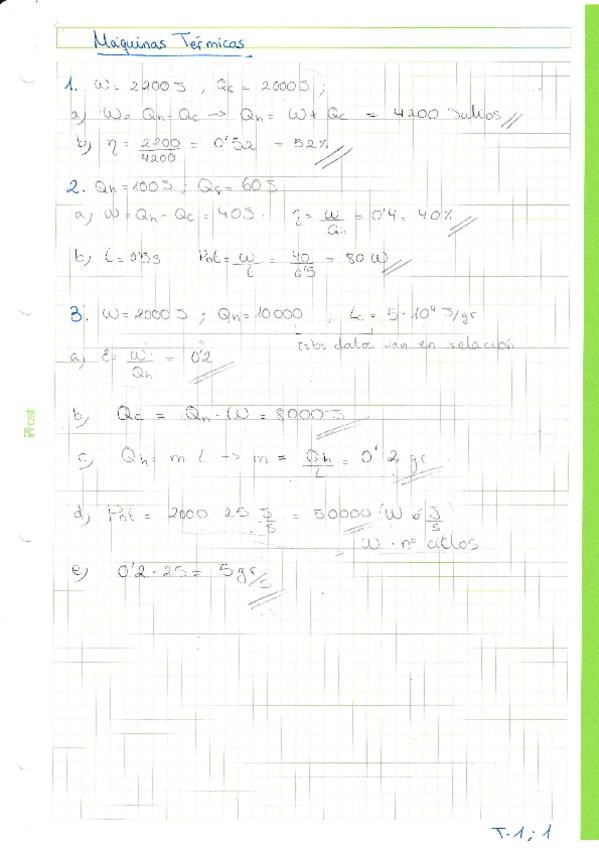 Máquinas Térmicas
1. W = 2200 J , Qc = 2000 J ;
a) W = Qh - Qc → Qh = W + Qc = 4200 Julios
b) η = 2200/4200 = 0'52 = 52%
2. Qh = 100 J ; Qc = 60 J
a) W = Qh - Qc = 40 J. η = W/Qh = 0'4 = 40%
b) t = 0'5 s Pot = W/t = 40/0'5 = 80 W
3. W = 2000 J ; Qh = 10000 , Lc = 5 · 10⁴ J/gr
estos datos van en relación
a) ε = W/Qh = 0'2
b) Qc = Qh - W = 8000 J
c) Qh = m L → m = Qh/L = 0'2 gr
d) Pot = 2000 · 25 J/s = 50000 W ó J/s
W · nº ciclos
e) 0'2 · 25 = 5 gr/s
T-1 ; 1